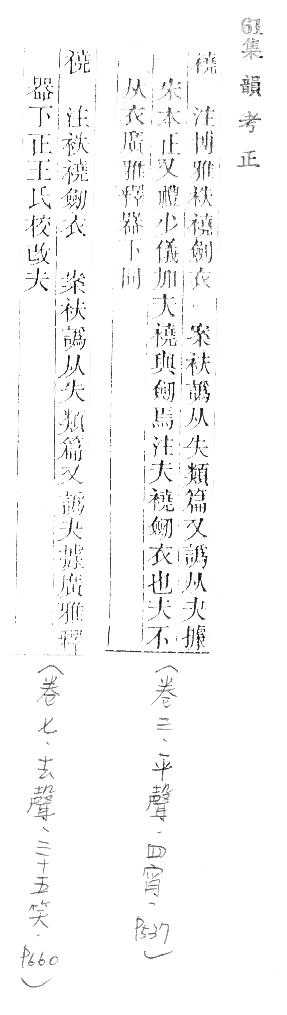 集韻考正
襓 注博雅袟襓劒衣 案袟譌从失類篇又譌从夬據
宋本正又禮少儀加夫襓與劒焉注夫襓劒衣也夫不
从衣廣雅釋器下同
(卷三、平聲、四宵、P537)
襓 注袟襓劒衣 案袟譌从失類篇又譌夬據廣雅釋
器下正王氏校改夫
(卷七、去聲、三十五笑、P660)